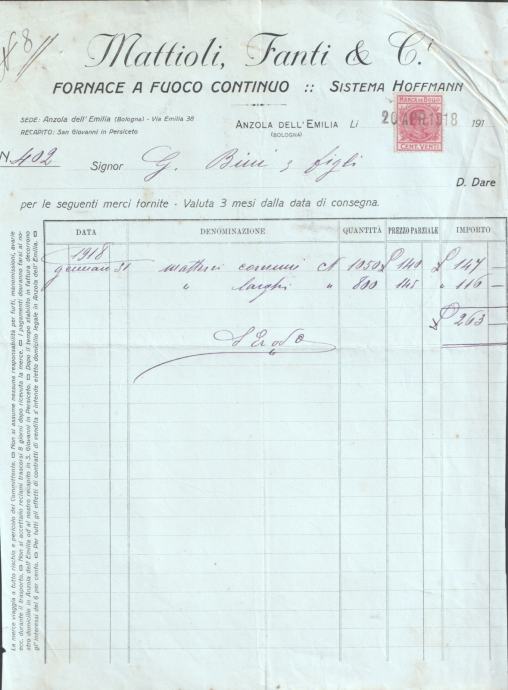 Mattioli, Fanti & C.i
FORNACE A FUOCO CONTINUO :: SISTEMA HOFFMANN
SEDE: Anzola dell'Emilia (Bologna) - Via Emilia 38
RECAPITO: San Giovanni in Persiceto
ANZOLA DELL'EMILIA Li
(BOLOGNA)
20 APR 1918
191
MARCA DA BOLLO
CENT. VENTI
N. 402
Signor G. Bini & figli
D. Dare
per le seguenti merci fornite - Valuta 3 mesi dalla data di consegna.
DATA DENOMINAZIONE QUANTITÀ PREZZO PARZIALE IMPORTO
1918
gennaio 31 mattoni comuni N 1050 £ 140 £ 147 —
" larghi " 800 145 " 116 —
£ 263 —
La merce viaggia a tutto rischio e pericolo del Committente. Non si assume nessuna responsabilità per furti, manomissioni, avarie
ecc. durante il trasporto. Non si accettano reclami trascorsi 8 giorni dopo ricevuta la merce. I pagamenti dovranno farsi al no-
stro domicilio in Anzola dell'Emilia od al nostro recapito in S. Giovanni in Persiceto. Dopo il tempo stabilito in fattura decorrono
gl'interessi del 6 per cento. Per tutti gli effetti di contratti di vendita s'intende eletto domicilio legale in Anzola dell'Emilia.